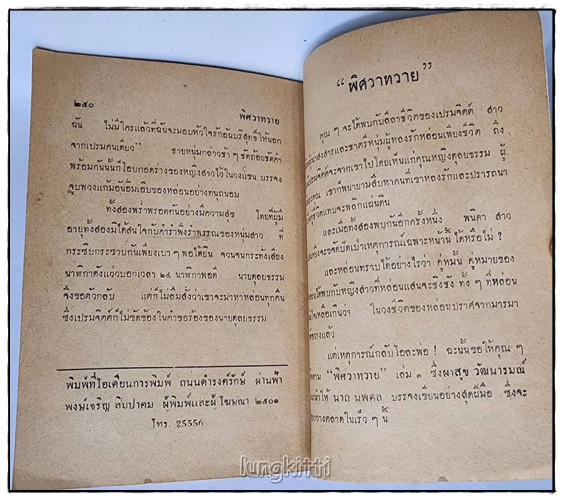 ๒๔๐ พิศวาทวาย
ฉัน ไม่มีใครแล้วที่ฉันจะมอบหัวใจรักอันบริสุทธิ์ให้นอก
จากเปรมคนเดียว” ชายหนุ่มกล่าวช้า ๆ
พร้อมกันนั้นก็โอบกอดร่างของหญิงสาวไว้ในวงแขน บรรจง
จูบพวงแก้มอันอิ่มเอบของหล่อนอย่างทนุถนอม
ทั้งสองพร่ำพรอดกันอย่างมีความสุข โดยที่ผู้มี
อายุทั้งสองมิได้สนใจกับคำรำพึงรำพรรณของหนุ่มสาว ที่
กระซิบกระซาบกันเพียงเบา ๆ พอได้ยิน จวนจนกระทั่งเสียง
นาฬิกาดังแว่วบอกเวลา ๒๔ นาฬิกาพอดี นายดุลยธรรม
จึงขอตัวกลับ แต่ก็ไม่ลืมสั่งว่าเขาจะมาหาหล่อนทุกคืน
ซึ่งเปรมจิตต์ก็ไม่ขัดข้องในคำขอร้องของนายดุลยธรรม
พิมพ์ที่โอเดียนการพิมพ์ ถนนดำรงค์รักษ์ ผ่านฟ้า
พงษ์เจริญ ลิบปาคม ผู้พิมพ์และผู้โฆษณา ๒๕๐๑
โทร. 25556
“พิศวาทวาย”
คุณ ๆ จะได้พบกับลีลาชีวิตของเปรมจิตต์ สาว
น่าสงสารและชาตรีหนุ่มผู้หลงรักหล่อนเพียงชีวิต ถึง
จิตต์จะจากเขาไปโดยเห็นแก่คุณหญิงดุลยธรรม ผู้
เขาก็พยายามสืบหาคนที่เขาหลงรักและปรารถนา
ชีวิตแทบจะพลิกแผ่นดิน
และเมื่อทั้งสองพบกันอีกครั้งหนึ่ง พนิดา สาว
จึงจะขจัดบัดเป่าเหตุการณ์เฉพาะหน้านี้ ได้หรือไม่ ?
และหล่อนทราบได้อย่างไรว่า คู่หมั้น คู่หมายของ
ได้พบกับหญิงสาวที่หล่อนแสนจะชิงชัง ทั้ง ๆ ที่หล่อน
ใจเหลือเกินว่า ในวงชีวิตของหล่อนปราศจากมารมา
ทางแล้ว
แต่เหตุการณ์กลับโอละพ่อ ! ฉะนั้นขอให้คุณ ๆ
“พิศวาทวาย” เล่ม ๓ ซึ่งผาสุข วัฒนารมณ์
ให้ นาถ นพดล บรรจงเขียนอย่างสุดฝีมือ ซึ่งจะ
วางตลาดในเร็ว ๆ นี้
lungkitti